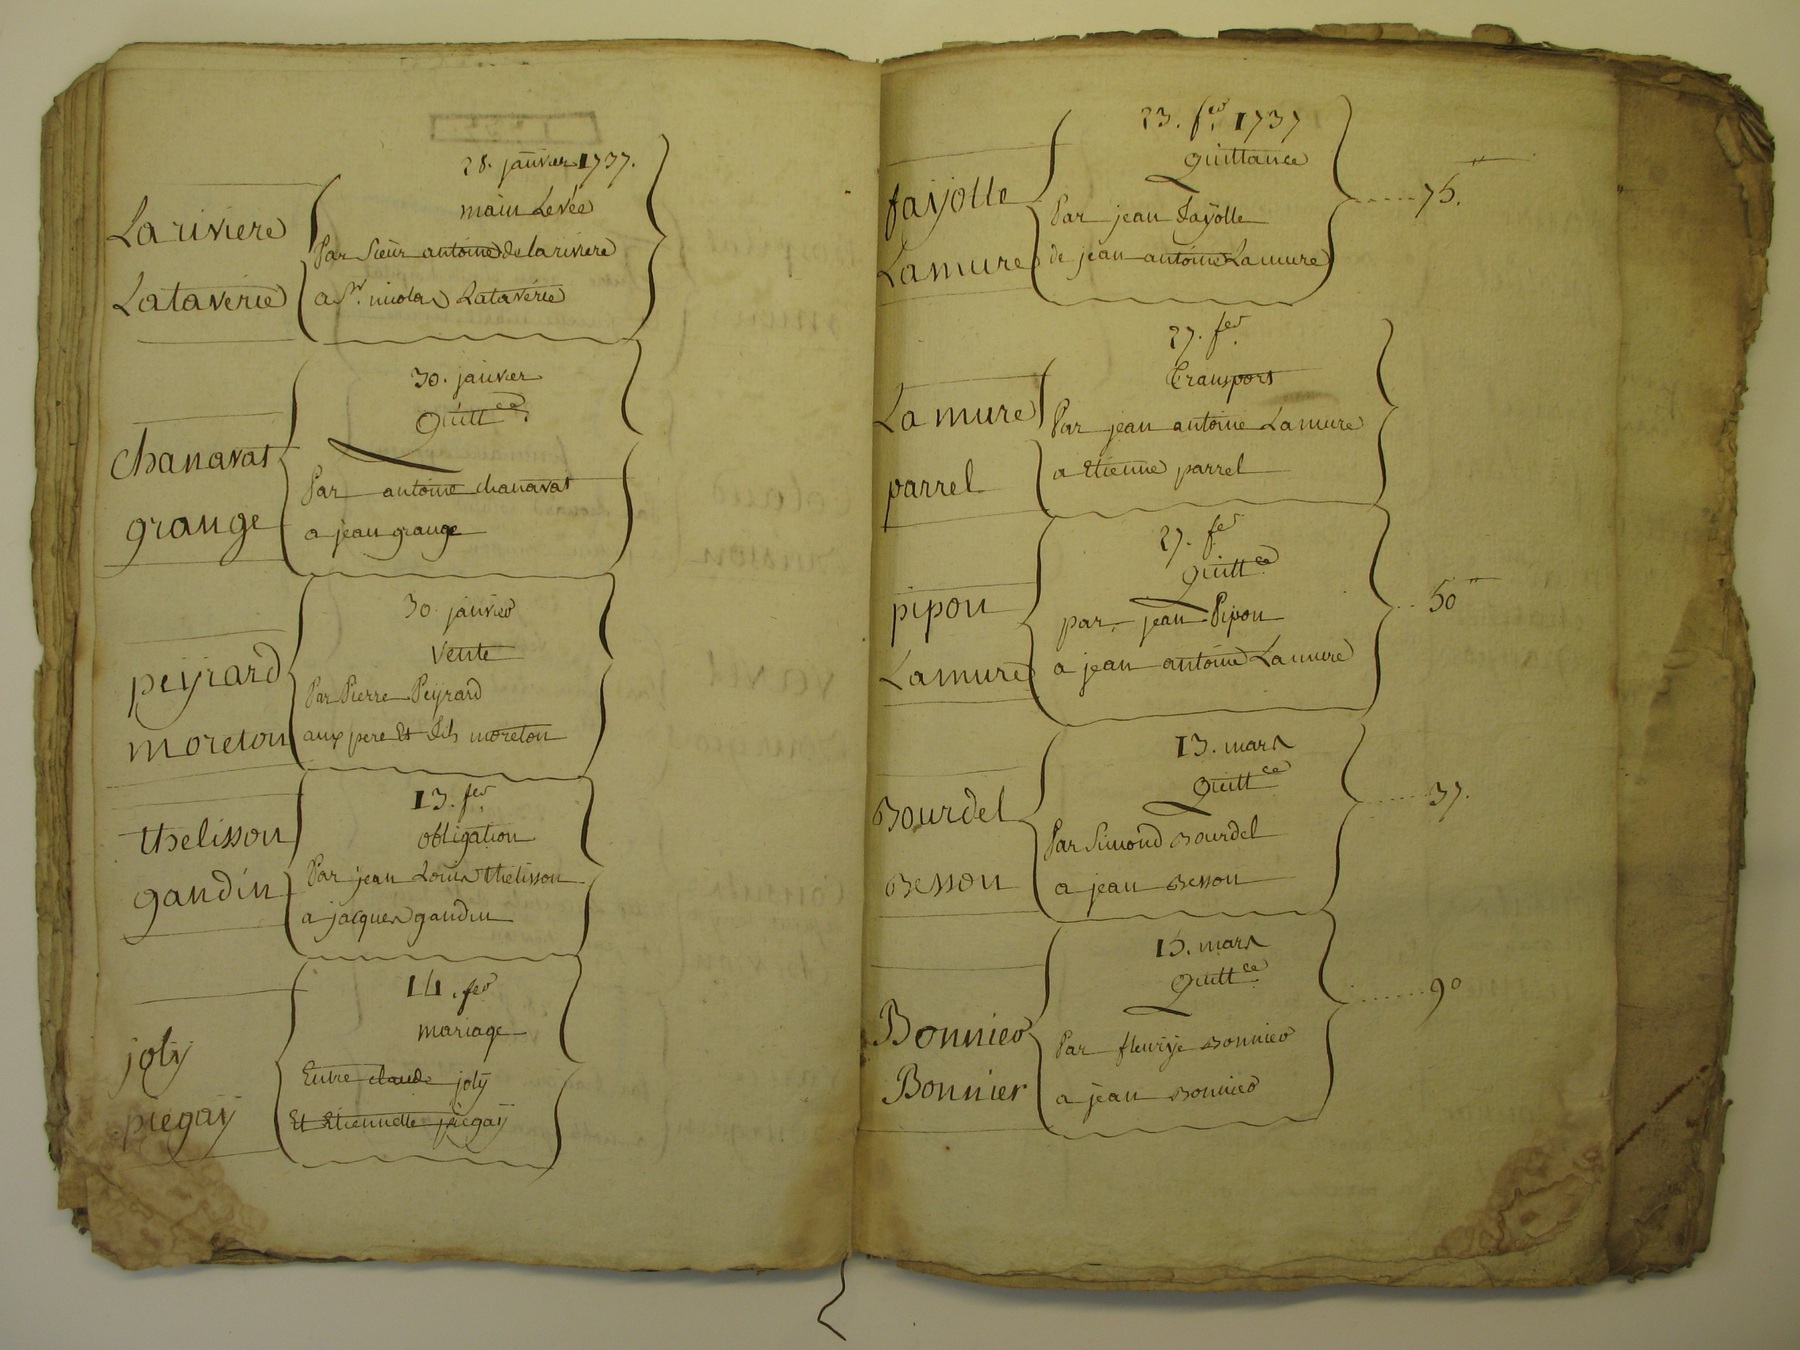 28. janvier 1737.
main Levée
La riviere
Par Sieur antoine de la riviere
Lataverie
a Sr. nicolas Lataverie
30. janvier
Quittce.
chanavat
Par antoine chanavat
grange
a jean grange
30. janvier
Vente
peyrard
Par Pierre Peyrard
moreton
aux pere Et fils moreton
13. fer.
obligation
thelisson
Par jean Louis thelisson
gandin
a jacques gandin
14. fer
mariage
joly
Entre claude joly
piegaÿ
Et Etiennette piegaÿ
23. fer. 1737
quittance
fayolle
Par jean fayolle
75.
Lamure
de jean antoine Lamure
27. fer.
transport
La mure
Par jean antoine Lamure
parrel
a Etienne parrel
27. fer
quittce
pipon
par jean Pipon
50
Lamure
a jean antoine Lamure
13. mars
Quittce
Bourdel
Par Simond Bourdel
37.
Besson
a jean Besson
15. mars
Quittce
90
Bonnier
Par fleurye Bonnier
Bonnier
a jean Bonnier